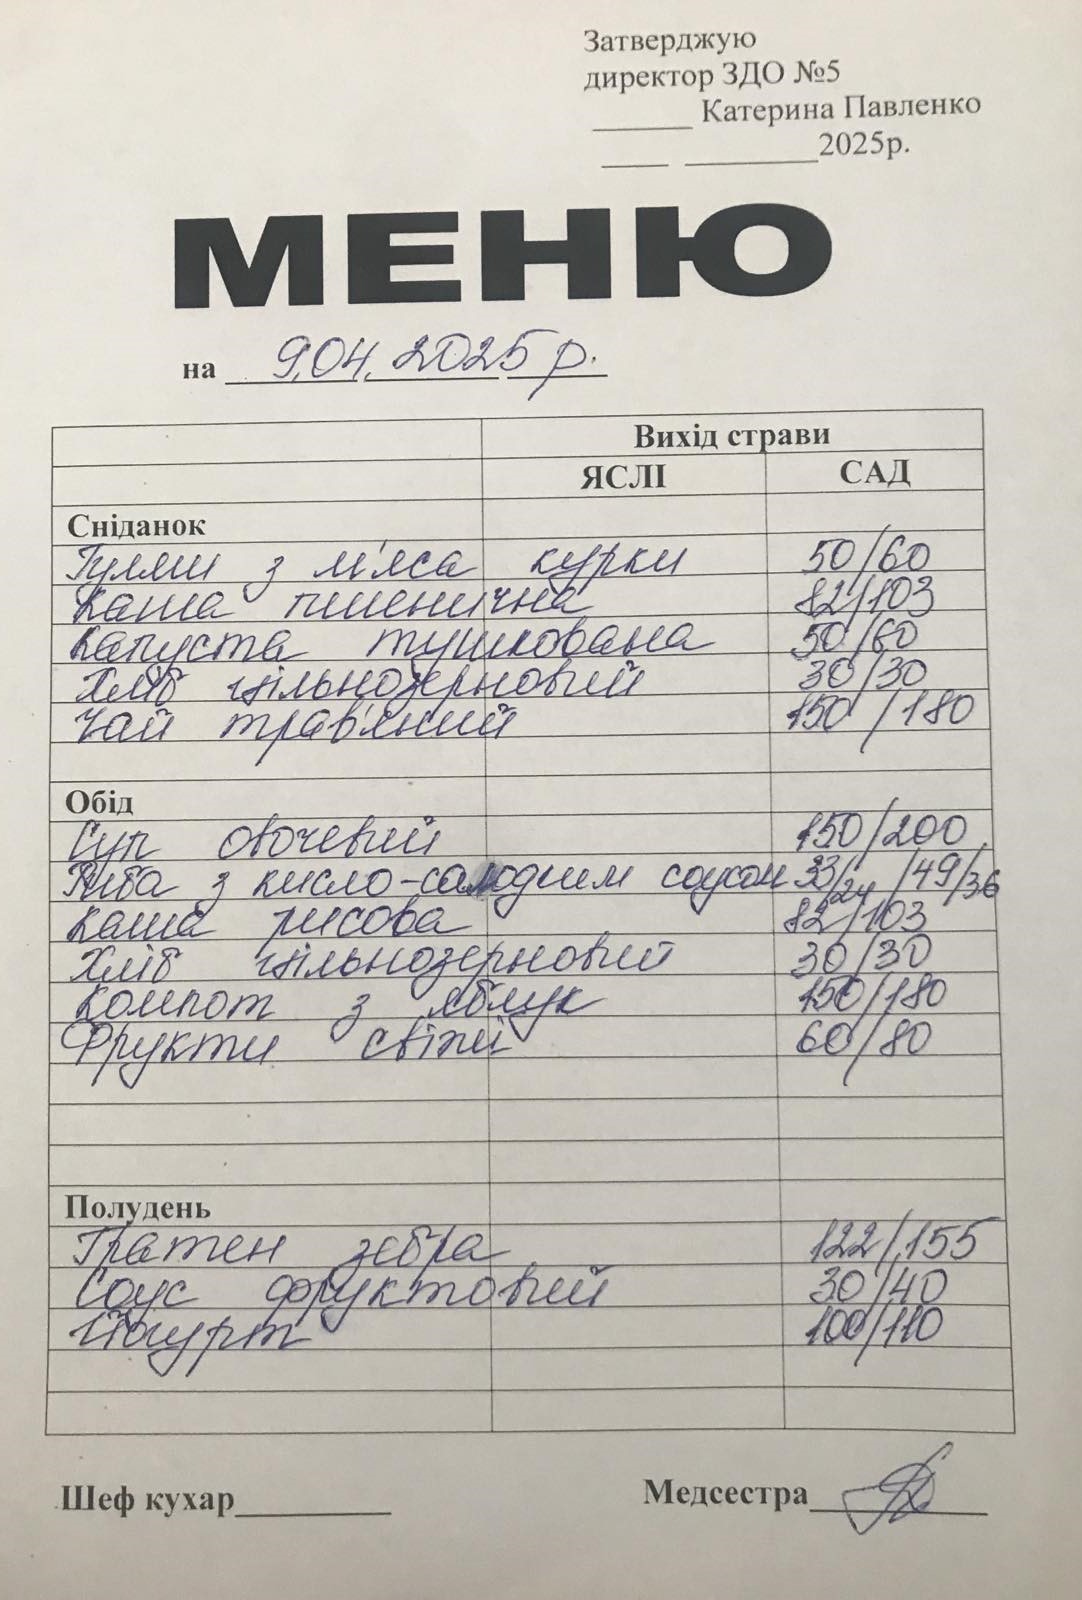 Затверджую
директор ЗДО №5
______ Катерина Павленко
____ ________2025р.
МЕНЮ
на 9.04.2025 р.
Вихід страви
ЯСЛІ САД
Сніданок
Гуляш з м'яса курки 50/60
Каша пшенична 82/103
Капуста тушкована 50/60
Хліб цільнозерновий 30/30
Чай трав'яний 150/180
Обід
Суп овочевий 150/200
Риба з кисло-солодким соусом 33/24/49/36
Каша рисова 82/103
Хліб цільнозерновий 30/30
Компот з яблук 150/180
Фрукти свіжі 60/80
Полудень
Гратен зебра 122/155
Соус фруктовий 30/40
Йогурт 100/110
Шеф кухар_________ Медсестра_________